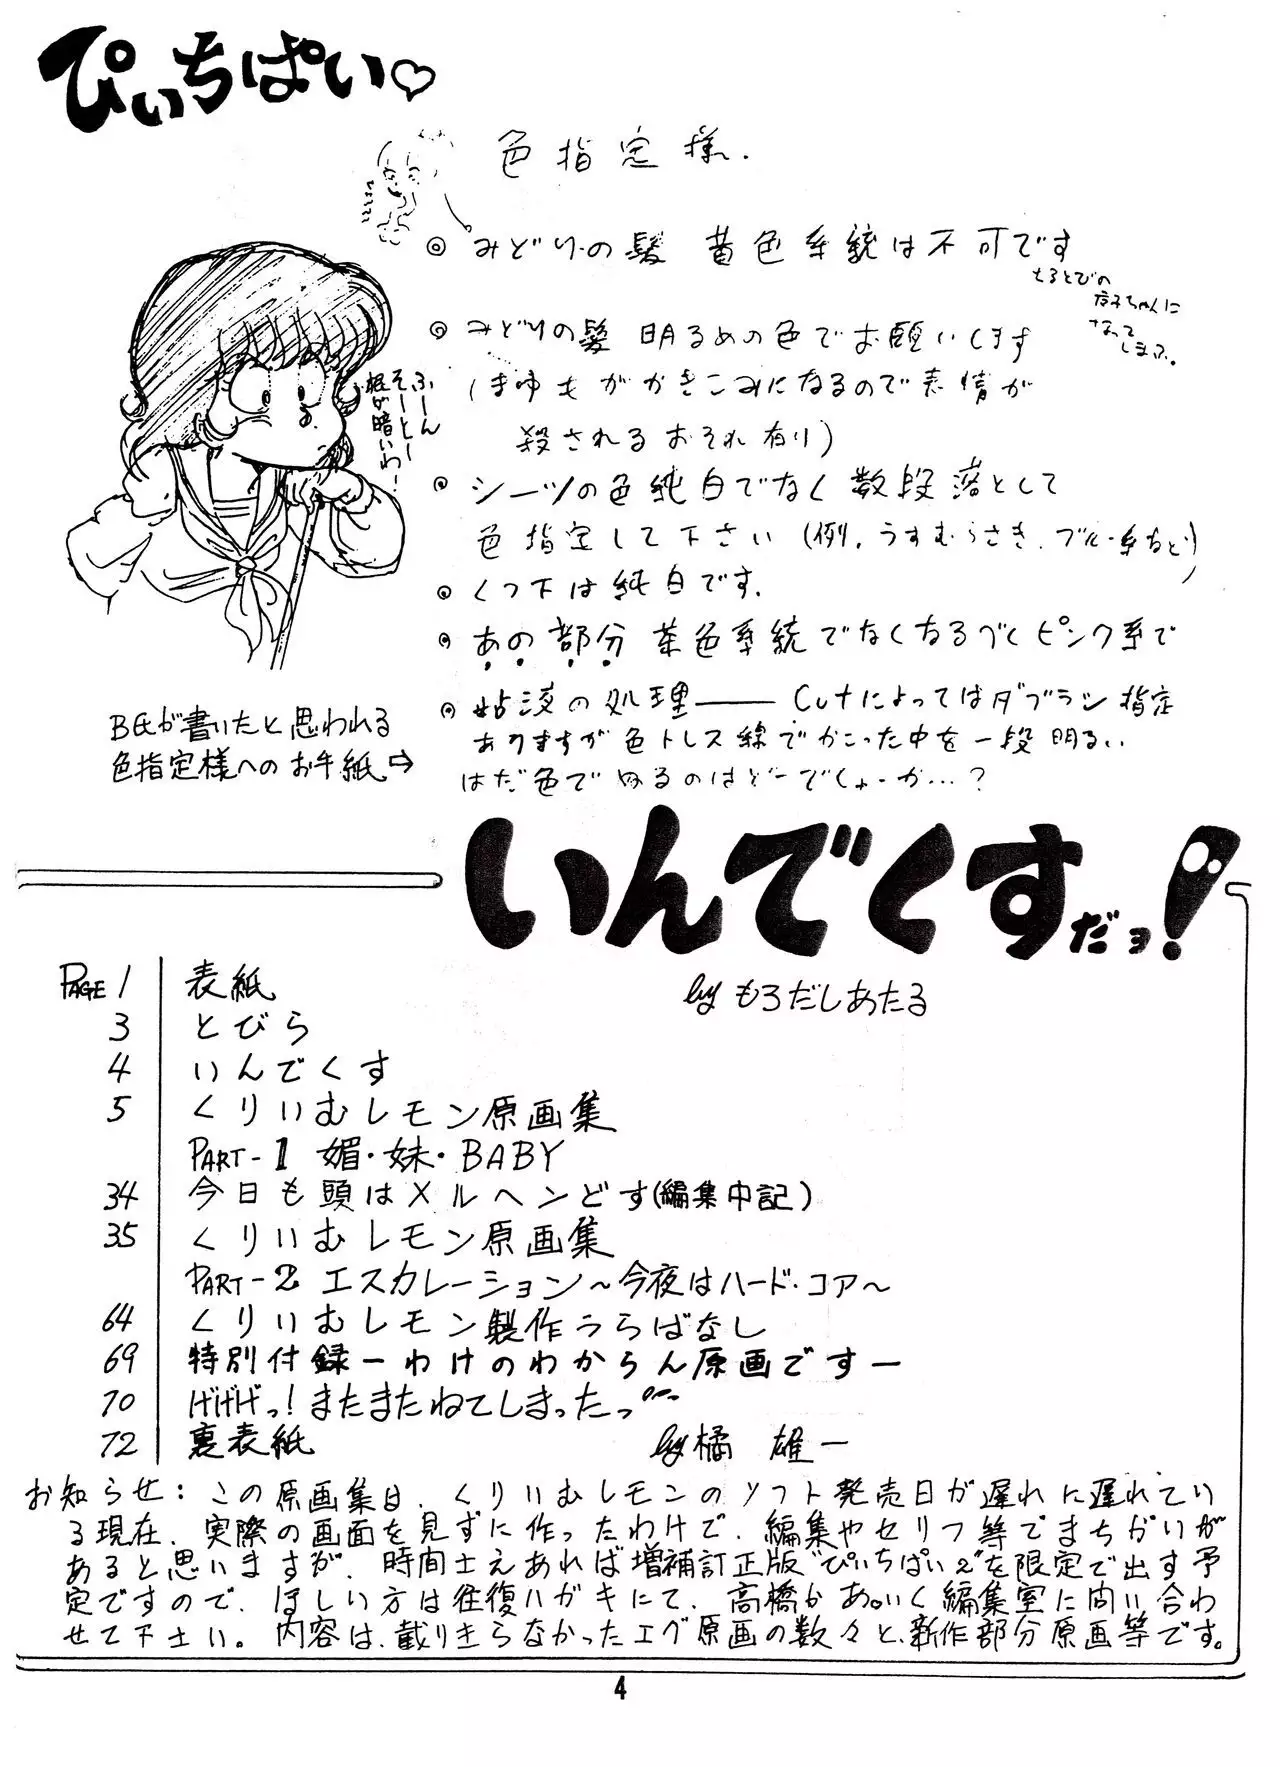 ぴぃちぱい♡
色指定様.
◎ みどりの髪 黄色系統は不可です
となってしまふ。
◎ みどりの髪 明るめの色でお願いします
(まゆもがかきこみになるので表情が
殺されるおそれ有り)
◎ シーツの色純白でなく数段落として
色指定して下さい(例.うすむらさき.ブルー系など)
◎ くつ下は純白です.
◎ あの部分 茶色系統でなくなるべくピンク系で
◎ 粘液の処理――Cutによってはダブラシ指定
ありますが色トレス線でかこった中を一段明るい
はだ色でぬるのはどーでしょーか…?
ふーん
そーとー
根が暗いわ!
B氏が書いたと思われる
色指定様へのお手紙⇨
いんでくすだョ!
by もろだしあたる
PAGE 1 表紙
3 とびら
4 いんでくす
5 くりいむレモン原画集
PART-1 媚・妹・BABY
34 今日も頭はメルヘンどす(編集中記)
35 くりいむレモン原画集
PART-2 エスカレーション~今夜はハード・コア~
64 くりいむレモン製作うらばなし
69 特別付録ーわけのわからん原画ですー
70 げげげっ!またまたねてしまったっ
72 裏表紙 by 橘 雄一
お知らせ:この原画集は、くりいむレモンのソフト発売日が遅れに遅れてい
る現在、実際の画面を見ずに作ったわけで、編集やセリフ等でまちがいが
あると思いますが、時間さえあれば増補訂正版"ぴぃちぱい2"を限定で出す予
定ですので、ほしい方は往復ハガキにて、高橋かあいく編集室に問い合わ
せて下さい。内容は、載りきらなかったエグ原画の数々と、新作部分原画等です。
4